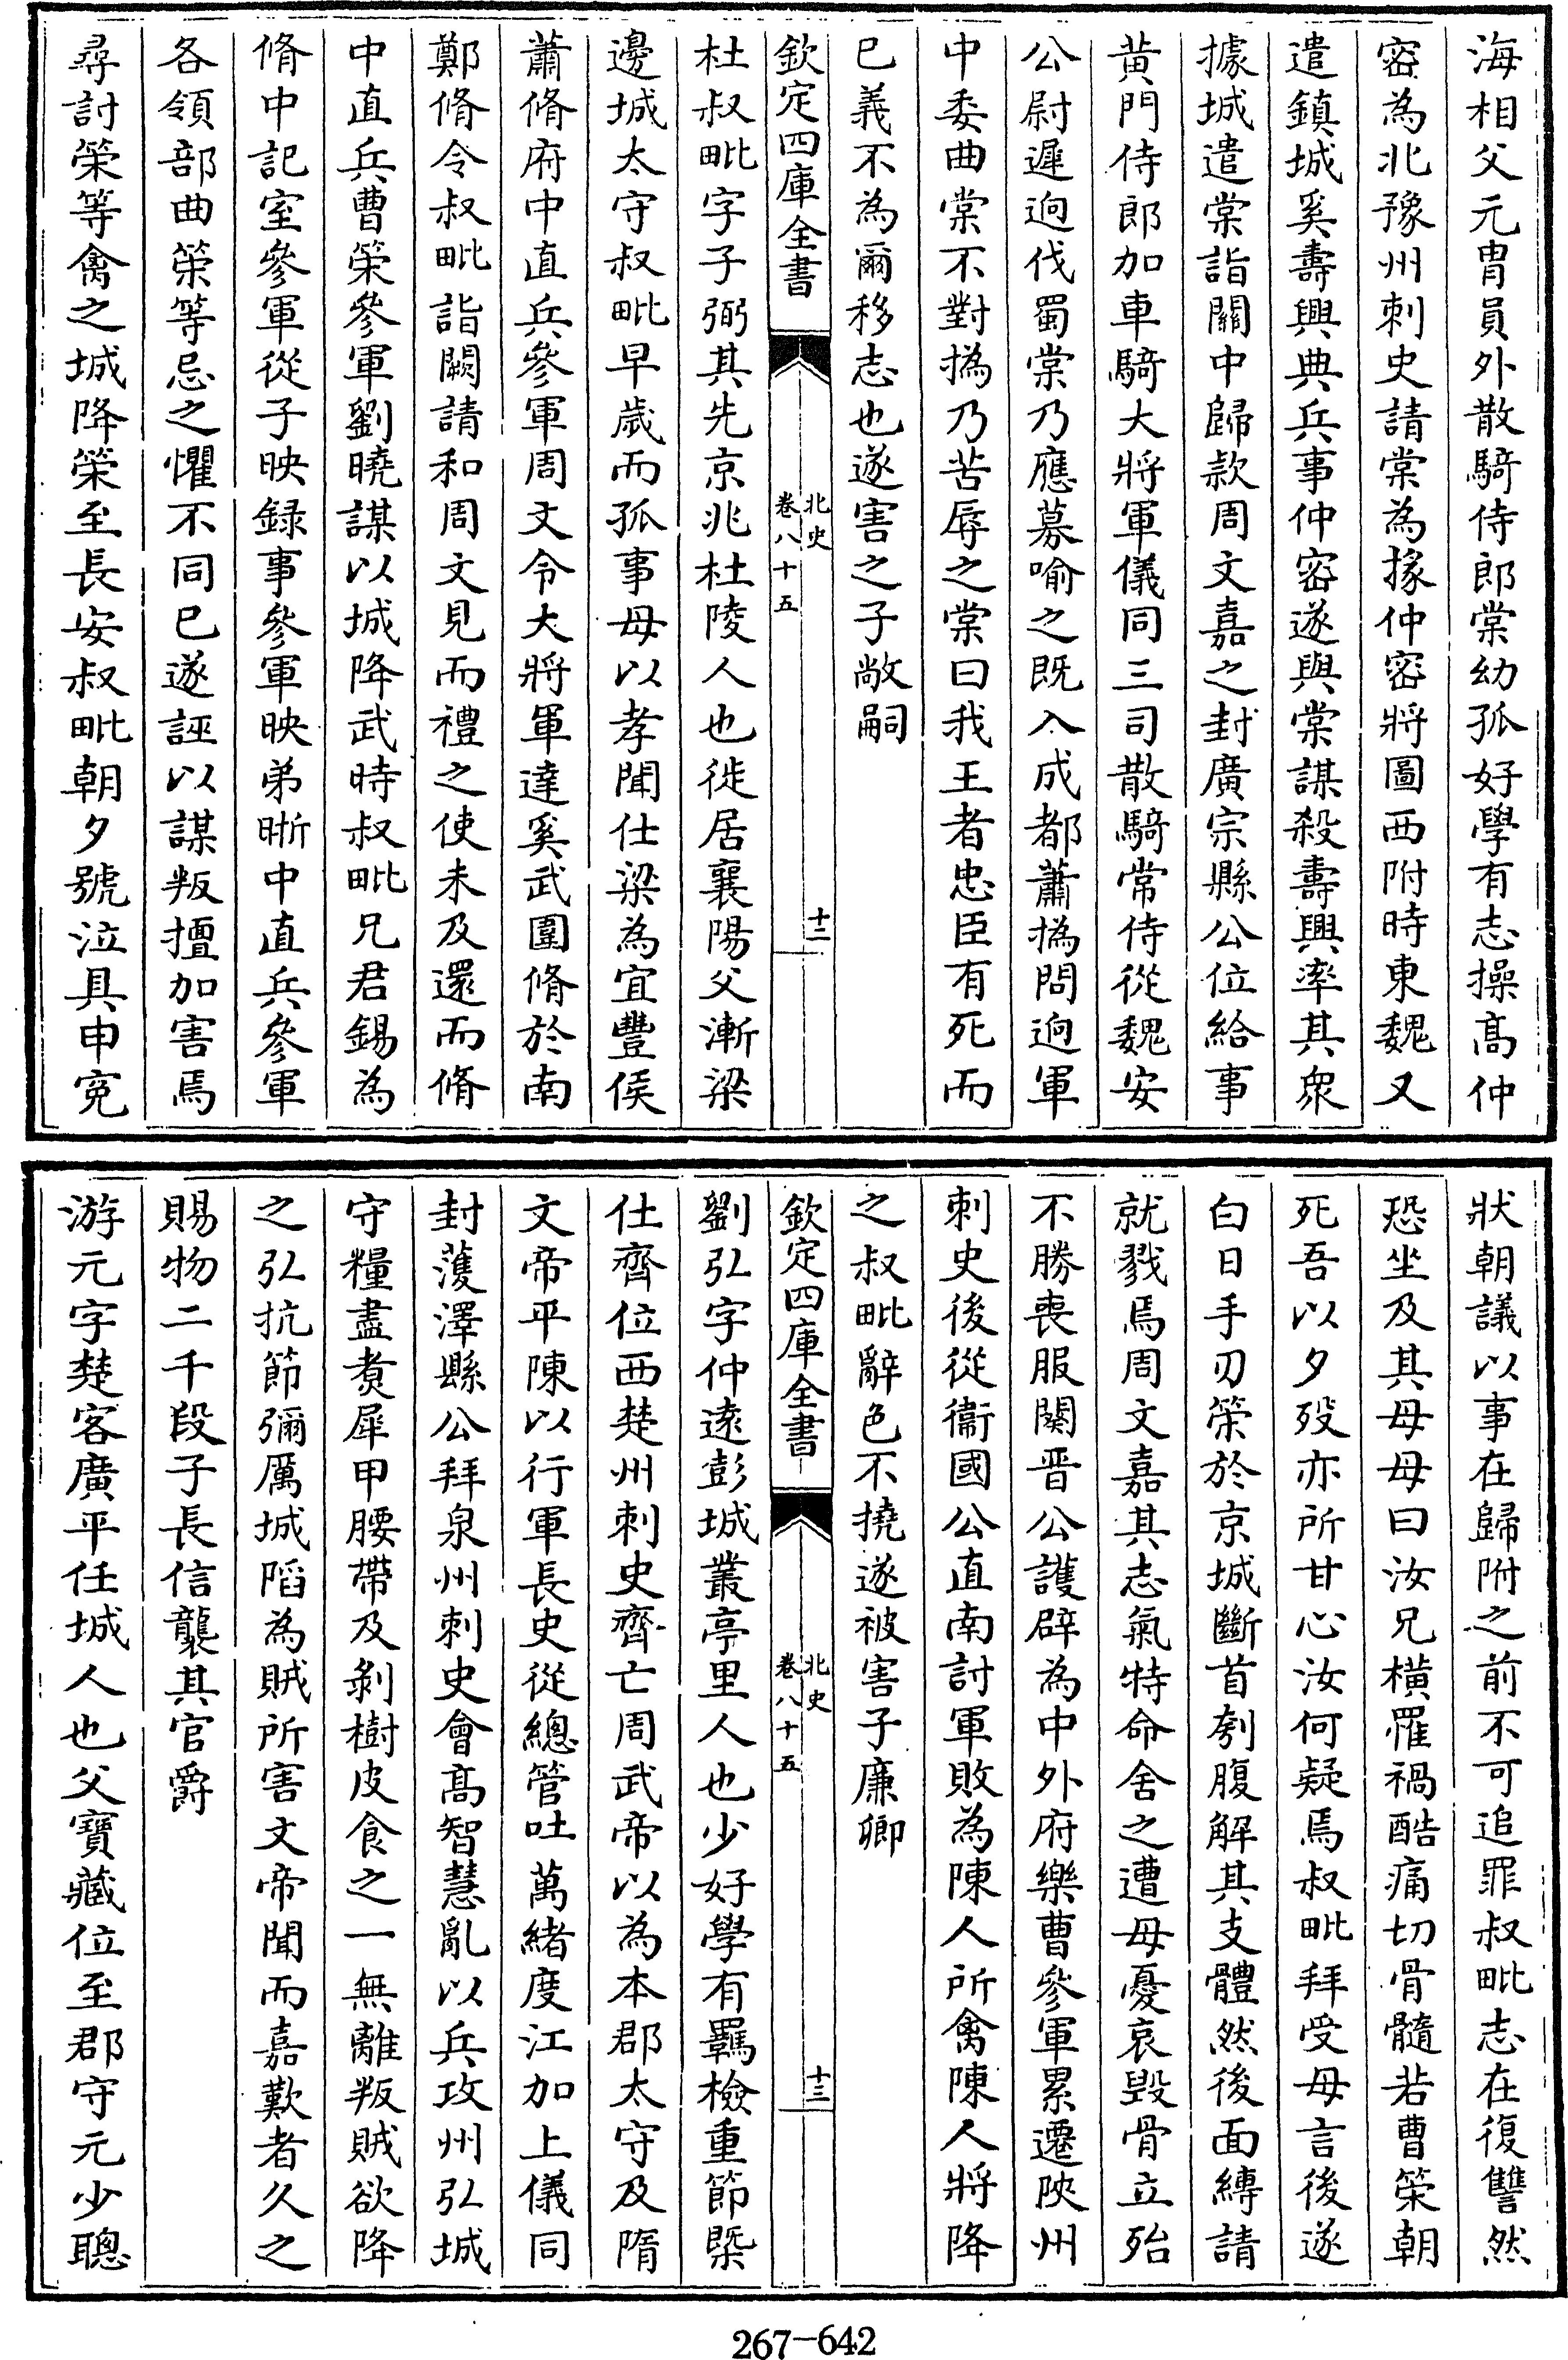 海相父元胄員外散騎侍郎棠幼孤好學有志操髙仲
宻為北豫州刺史請棠為掾仲宻將圖西附時東魏又
遣鎮城奚壽興典兵事仲宻遂與棠謀殺壽興率其衆
據城遣棠詣關中歸款周文嘉之封廣宗縣公位給事
黄門侍郎加車騎大將軍儀同三司散騎常侍從魏安
公尉遲迥伐蜀棠乃應募喻之既入成都蕭撝問迥軍
中委曲棠不對撝乃苦辱之棠曰我王者忠臣有死而
已義不為爾移志也遂害之子敞嗣
欽定四庫全書
北史
卷八十五
十二
杜叔毗字子弼其先京兆杜陵人也徙居襄陽父漸梁
邊城太守叔毗早歲而孤事母以孝聞仕梁為宜豐侯
蕭脩府中直兵參軍周文令大將軍達奚武圍脩於南
鄭脩令叔毗詣闕請和周文見而禮之使未及還而脩
中直兵曹策參軍劉曉謀以城降武時叔毗兄君錫為
脩中記室參軍從子映録事參軍映弟晣中直兵參軍
各領部曲策等忌之懼不同已遂誣以謀叛擅加害焉
尋討策等禽之城降策至長安叔毗朝夕號泣具申寃
狀朝議以事在歸附之前不可追罪叔毗志在復讐然
恐坐及其母母曰汝兄橫罹禍酷痛切骨髓若曹策朝
死吾以夕殁亦所甘心汝何疑焉叔毗拜受母言後遂
白日手刃策於京城斷首刳腹解其支體然後面縛請
就戮焉周文嘉其志氣特命舍之遭母憂哀毁骨立殆
不勝喪服闋晉公護辟為中外府樂曹參軍累遷陜州
刺史後從衞國公直南討軍敗為陳人所禽陳人將降
之叔毗辭色不撓遂被害子廉卿
欽定四庫全書
北史
卷八十五
十三
劉弘字仲逺彭城叢亭里人也少好學有羈檢重節槩
仕齊位西楚州刺史齊亡周武帝以為本郡太守及隋
文帝平陳以行軍長史從總管吐萬緒度江加上儀同
封濩澤縣公拜泉州刺史會髙智慧亂以兵攻州弘城
守糧盡煑犀甲腰帶及剝樹皮食之一無離叛賊欲降
之弘抗節彌厲城陷為賊所害文帝聞而嘉歎者久之
賜物二千段子長信襲其官爵
游元字楚客廣平任城人也父寶藏位至郡守元少聰
267-642